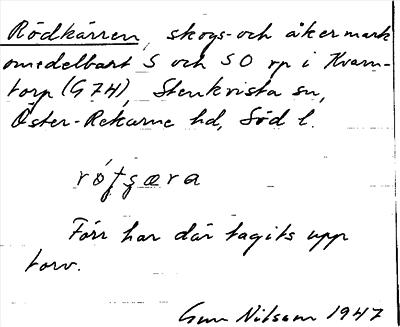 Rödkärren, skogs- och åkermark
omedelbart S och SO rp i Kvarn-
torp (G74), Stenkvista sn,
Öster-Rekarne hd, Söd l.
Förr har där tagits upp
torv.
Gun Nilsson 1947